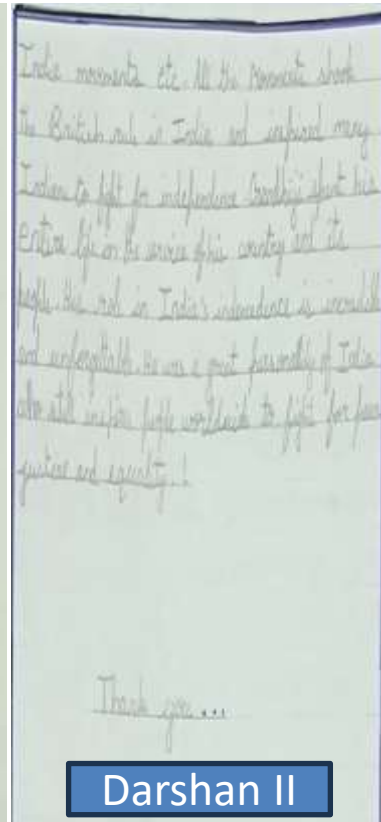 India movements etc. All the movements shook
the British rule in India and inspired many
Indians to fight for independence. Gandhiji spent his
entire life on the service of his country and its
people. His role in India's independence is incredible
and unforgettable. He was a great personality of India
who still inspire people worldwide to fight for peace
justice and equality!
Thank you...
Darshan II